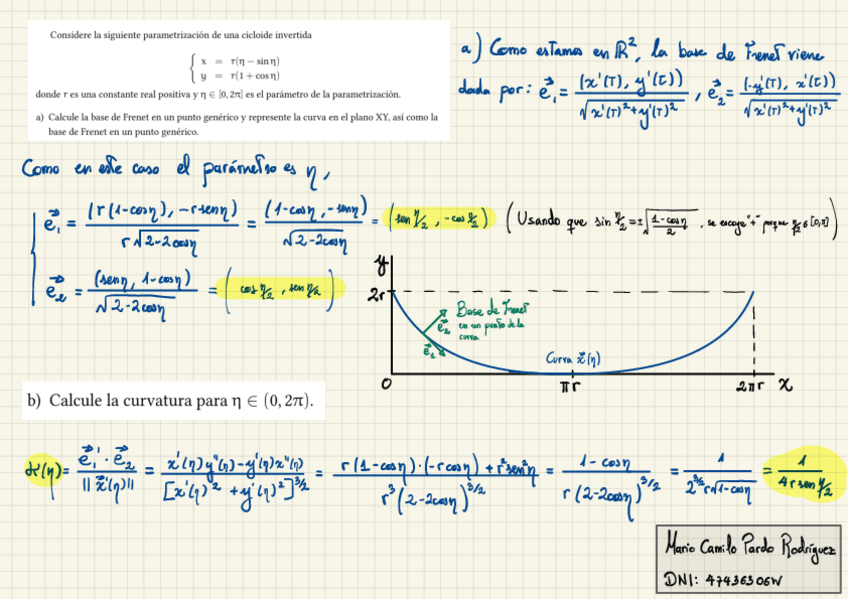 Considere la siguiente parametrización de una cicloide invertida
x = r(η − sin η)
y = r(1 + cos η)
donde r es una constante real positiva y η ∈ [0, 2π] es el parámetro de la parametrización.
a) Calcule la base de Frenet en un punto genérico y represente la curva en el plano XY, así como la
base de Frenet en un punto genérico.
a) Como estamos en ℝ², la base de Frenet viene
dada por: e⃗₁ = (x'(τ), y'(τ)) / √(x'(τ)² + y'(τ)²) , e⃗₂ = (-y'(τ), x'(τ)) / √(x'(τ)² + y'(τ)²)
Como en este caso el parámetro es η,
e⃗₁ = (r(1-cosη), -r senη) / (r√(2-2cosη)) = (1-cosη, -senη) / √(2-2cosη) = (sen η/2, -cos η/2) (Usando que sin η/2 = ±√((1-cosη)/2), se escoge "+" porque η/2 ∈ [0,π])
e⃗₂ = (senη, 1-cosη) / √(2-2cosη) = (cos η/2, sen η/2)
y
2r
Base de Frenet
en un punto de la
curva
e⃗₂
e⃗₁
Curva x⃗(η)
0
πr
2πr
x
b) Calcule la curvatura para η ∈ (0, 2π).
κ(η) = e⃗₁' · e⃗₂ / ||x⃗'(η)|| = (x'(η)y''(η) - y'(η)x''(η)) / [x'(η)² + y'(η)²]^(3/2) = (r(1-cosη)·(-r cosη) + r² sen²η) / (r³(2-2cosη)^(3/2)) = (1-cosη) / (r(2-2cosη)^(3/2)) = 1 / (2^(3/2) r√(1-cosη)) = 1 / (4r sen η/2)
Mario Camilo Pardo Rodríguez
DNI: 47436306W